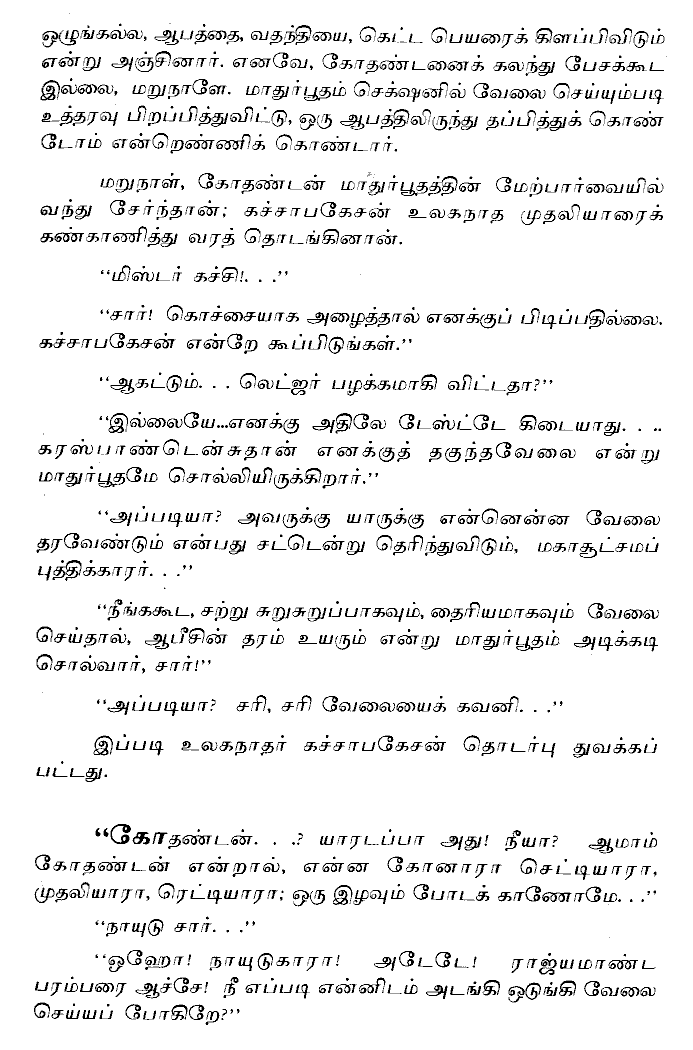 ஒழுங்கல்ல, ஆபத்தை, வதந்தியை, கெட்ட பெயரைக் கிளப்பிவிடும்
என்று அஞ்சினார். எனவே, கோதண்டனைக் கலந்து பேசக்கூட
இல்லை, மறுநாளே. மாதுர்பூதம் செக்ஷனில் வேலை செய்யும்படி
உத்தரவு பிறப்பித்துவிட்டு, ஒரு ஆபத்திலிருந்து தப்பித்துக் கொண்
டோம் என்றெண்ணிக் கொண்டார்.
மறுநாள், கோதண்டன் மாதுர்பூதத்தின் மேற்பார்வையில்
வந்து சேர்ந்தான்; கச்சாபகேசன் உலகநாத முதலியாரைக்
கண்காணித்து வரத் தொடங்கினான்.
“மிஸ்டர் கச்சி!. . .”
“சார்! கொச்சையாக அழைத்தால் எனக்குப் பிடிப்பதில்லை.
கச்சாபகேசன் என்றே கூப்பிடுங்கள்.”
“ஆகட்டும். . . லெட்ஜர் பழக்கமாகி விட்டதா?”
“இல்லையே...எனக்கு அதிலே டேஸ்ட்டே கிடையாது. . ..
கரஸ்பாண்டென்சுதான் எனக்குத் தகுந்தவேலை என்று
மாதுர்பூதமே சொல்லியிருக்கிறார்.”
“அப்படியா? அவருக்கு யாருக்கு என்னென்ன வேலை
தரவேண்டும் என்பது சட்டென்று தெரிந்துவிடும், மகாசூட்சமப்
புத்திக்காரர். . .”
“நீங்ககூட, சற்று சுறுசுறுப்பாகவும், தைரியமாகவும் வேலை
செய்தால், ஆபீசின் தரம் உயரும் என்று மாதுர்பூதம் அடிக்கடி
சொல்வார், சார்!”
“அப்படியா? சரி, சரி வேலையைக் கவனி. . .”
இப்படி உலகநாதர் கச்சாபகேசன் தொடர்பு துவக்கப்
பட்டது.
“கோதண்டன். . .? யாரடப்பா அது! நீயா? ஆமாம்
கோதண்டன் என்றால், என்ன கோனாரா செட்டியாரா,
முதலியாரா, ரெட்டியாரா; ஒரு இழவும் போடக் காணோமே. . .”
“நாயுடு சார். . .”
“ஒஹோ! நாயுடுகாரா! அடேடே! ராஜ்யமாண்ட
பரம்பரை ஆச்சே! நீ எப்படி என்னிடம் அடங்கி ஒடுங்கி வேலை
செய்யப் போகிறே?”